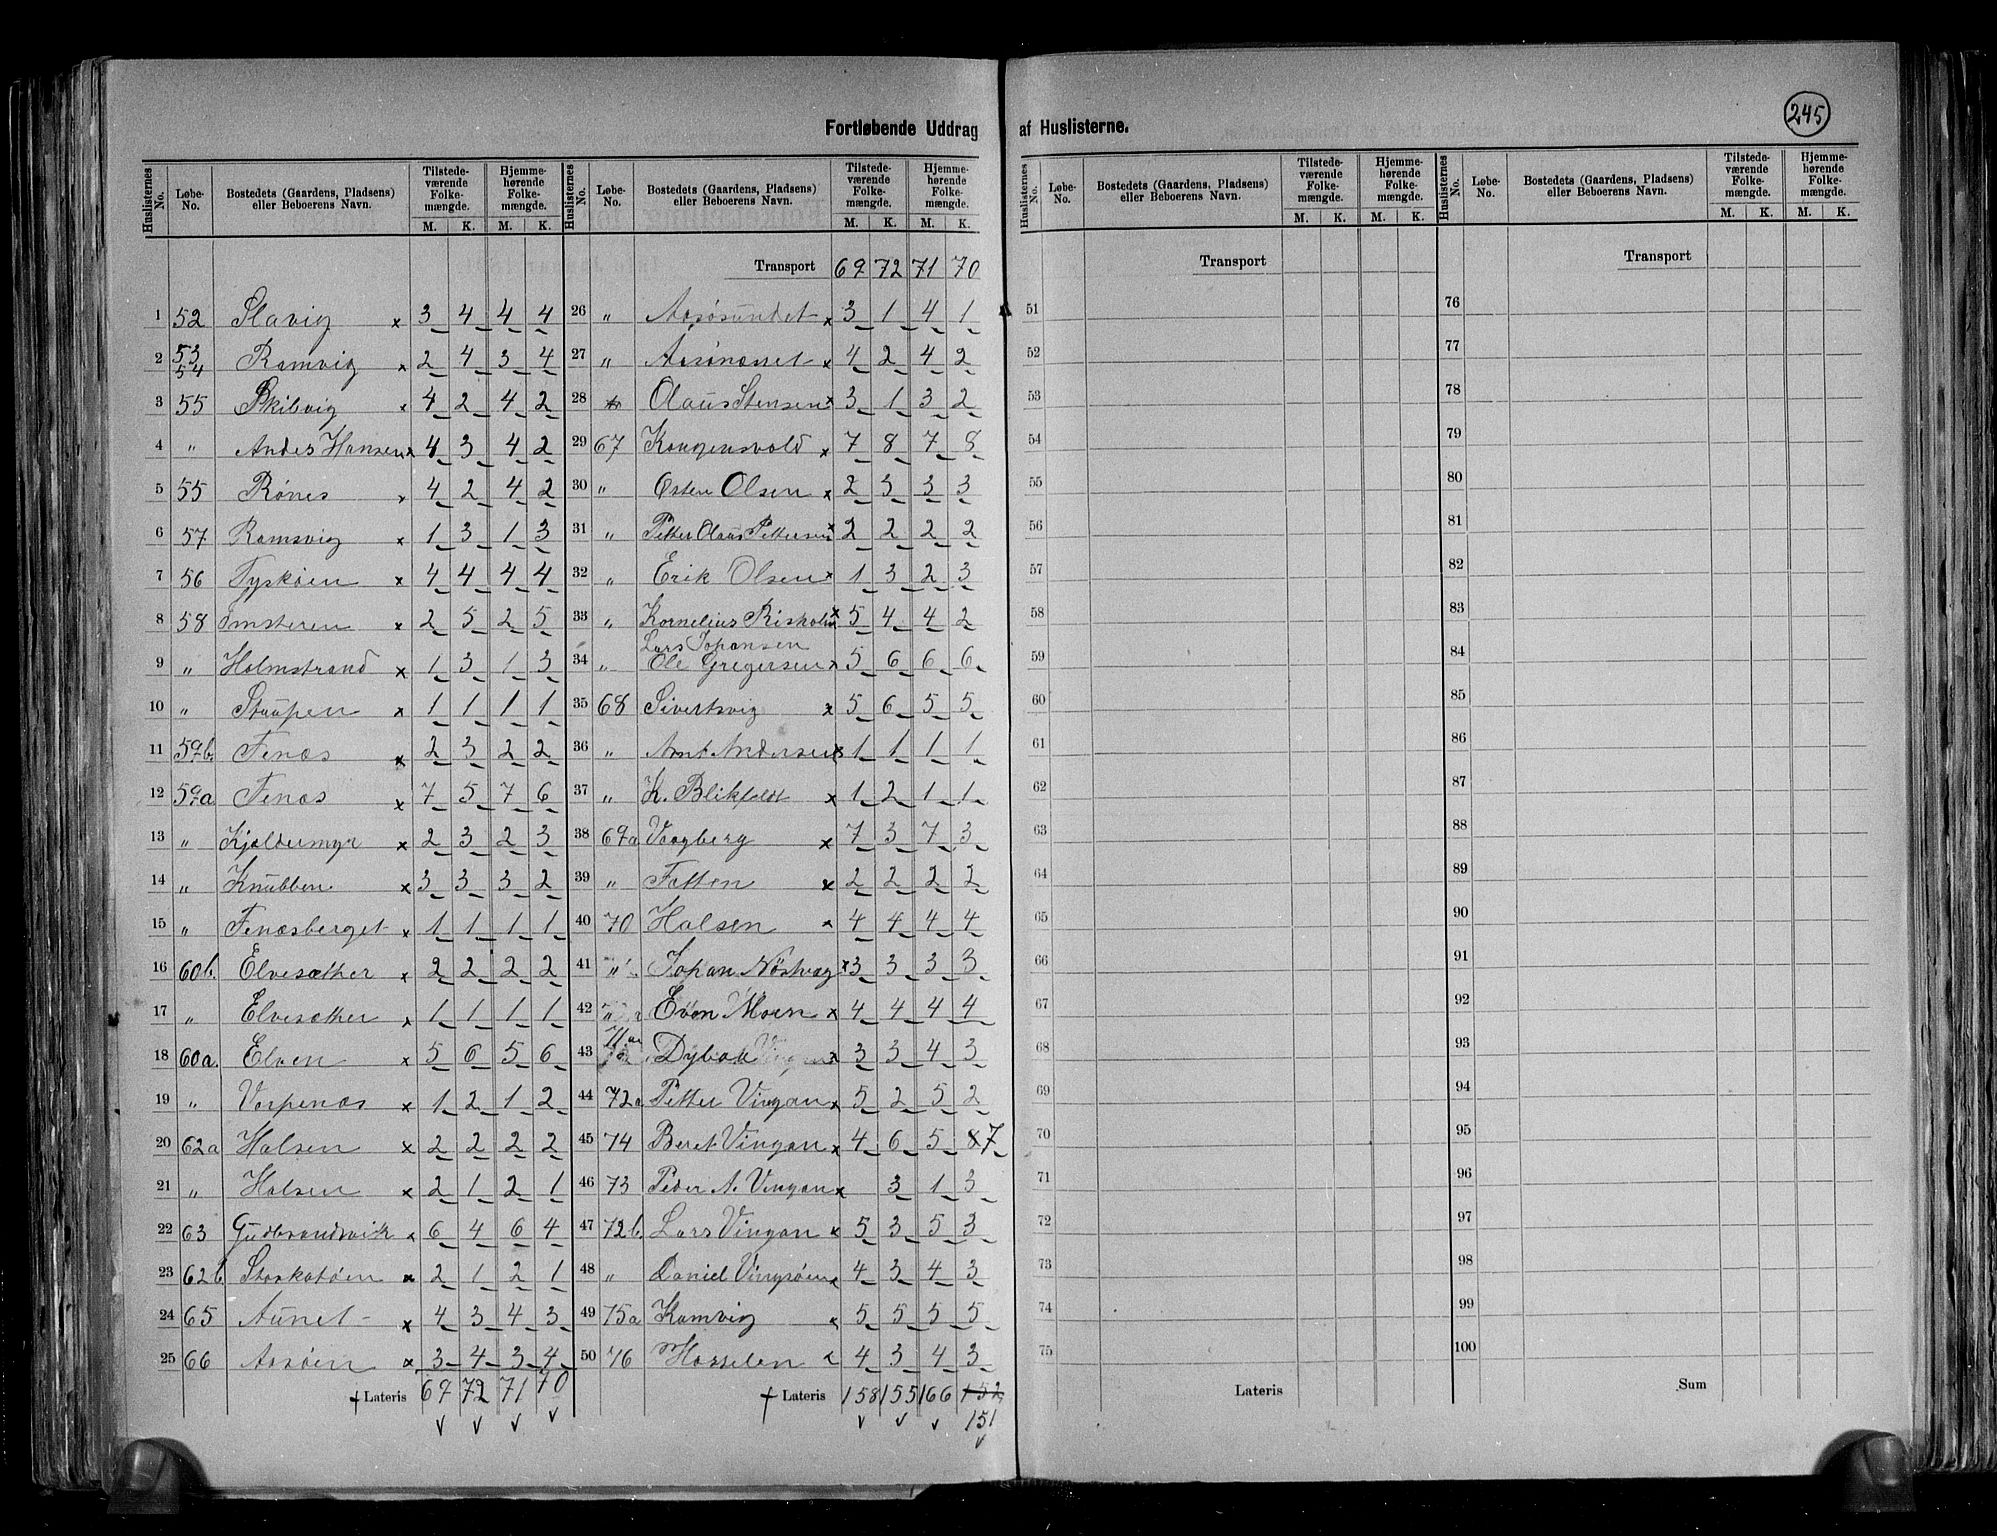 245
Fortløbende Uddrag af Huslisterne.
Huslisternes No. Løbe-No. Bostedets (Gaardens, Pladsens) eller Beboerens Navn. Tilstede-værende Folke-mængde. M. K. Hjemme-hørende Folke-mængde. M. K.
1 52 Slavig x 3 4 4 4
2 53 54 Ramvig x 2 4 3 4
3 55 Skibvig x 4 2 4 2
4 " Andes Hansen x 4 3 4 2
5 55 Rønes x 4 2 4 2
6 57 Ramsvig x 1 3 1 3
7 56 Tyskøen x 4 4 4 4
8 58 Imsteren x 2 5 2 5
9 " Holmstrand x 1 3 1 3
10 " Staupen x 1 1 1 1
11 59b. Fenæs x 2 3 2 2
12 59a Fenæs x 7 5 7 6
13 " Kjeldermyr x 2 3 2 3
14 " Knubben x 3 3 3 2
15 " Fenæsberget x 1 1 1 1
16 60b. Elvesæther x 2 2 2 2
17 " Elvesæther x 1 1 1 1
18 60a. Elven x 5 6 5 6
19 " Vorpenæs x 1 2 1 2
20 62a Halsen x 2 2 2 2
21 " Halsen x 2 1 2 1
22 63 Gudbrandsvik x 6 4 6 4
23 62b Staakatøen x 2 1 2 1
24 65 Aunet x 4 3 4 3
25 66 Aasøen x 3 4 3 4
Lateris 69 72 71 70
Huslisternes No. Løbe-No. Bostedets (Gaardens, Pladsens) eller Beboerens Navn. Tilstede-værende Folke-mængde. M. K. Hjemme-hørende Folke-mængde. M. K.
Transport 69 72 71 70
26 " Aasøsundet x 3 1 4 1
27 " Aasønæsset x 4 2 4 2
28 Olaus Stensen x 3 1 3 2
29 67 Kongensvold x 7 8 7 8
30 " Osten Olsen x 2 3 3 3
31 " Petter Olaus Pettersen x 2 2 2 2
32 " Erik Olsen x 1 3 2 3
33 " Kornelius Risholm x 5 4 4 2
Lars Johansen
34 " Ole Gregersen x 5 6 6 6
35 68 Sivertsvig x 5 6 5 5
36 " Arnt Andersen x 1 1 1 1
37 " K. Blikfeldt x 1 2 1 1
38 69a Vaagberg x 7 3 7 3
39 " Fætten x 2 2 2 2
40 70 Halsen x 4 4 4 4
41 " Johan Nøstvag x 3 3 3 3
42 " Even Moen x 4 4 4 4
43 71a Dybvad x 3 3 4 3
44 72a Petter Vingan x 5 2 5 2
45 74 Beret Vingan x 4 6 5 8 7
46 73 Peder A. Vingan x 3 1 3
47 72b. Lars Vingan x 5 3 5 3
48 " Daniel Vingsøen x 4 3 4 3
49 75a Kamvig x 5 5 5 5
50 76 Hasselen x 4 3 4 3
Lateris 158 155 166 152
151
Huslisternes No. Løbe-No. Bostedets (Gaardens, Pladsens) eller Beboerens Navn. Tilstede-værende Folke-mængde. M. K. Hjemme-hørende Folke-mængde. M. K.
Transport
51
52
53
54
55
56
57
58
59
60
61
62
63
64
65
66
67
68
69
70
71
72
73
74
75
Lateris
Huslisternes No. Løbe-No. Bostedets (Gaardens, Pladsens) eller Beboerens Navn. Tilstede-værende Folke-mængde. M. K. Hjemme-hørende Folke-mængde. M. K.
Transport
76
77
78
79
80
81
82
83
84
85
86
87
88
89
90
91
92
93
94
95
96
97
98
99
100
Sum